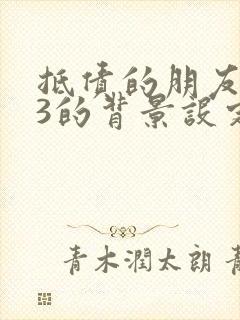 抵债的朋友
3的背景設定
青木潤太朗